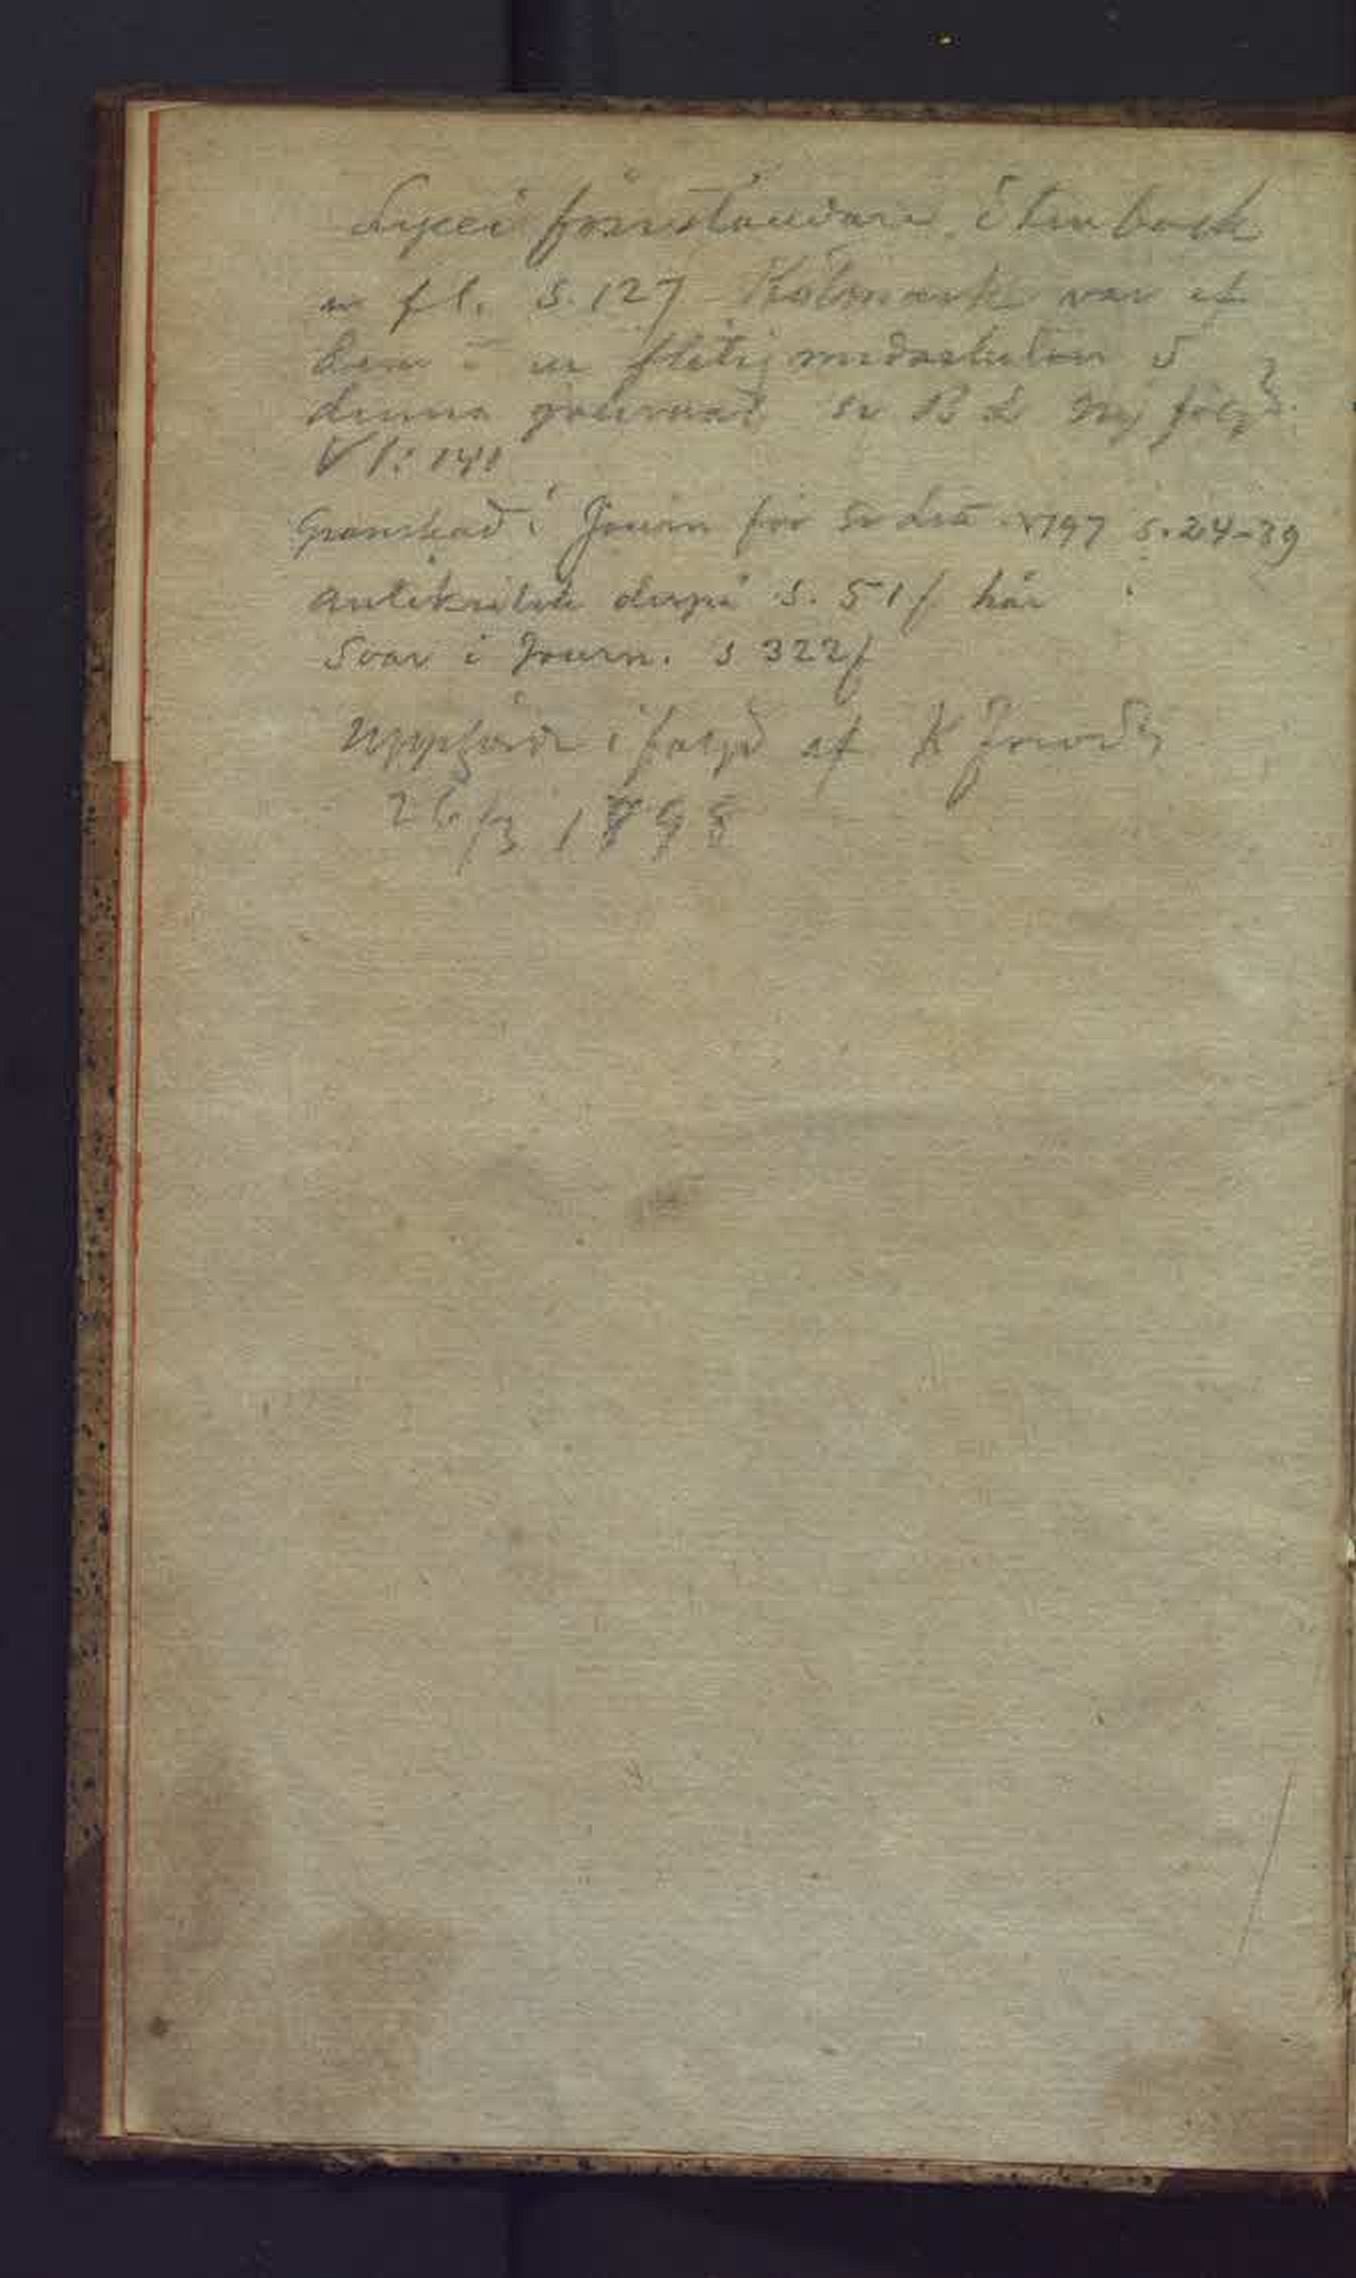 Lycei föreståndare Stenbock
m fl. S. 127 Kolmark var ef
dem en flitig medarbetare i
denna se B L Ny följd
VI: 141
Granskad i Journ för Sv Litt 1797 s. 24-39
Antikritik derpå s. 51 f här
Svar i Journ. s 322 f
Uppförd i följd af K
26/3 1898